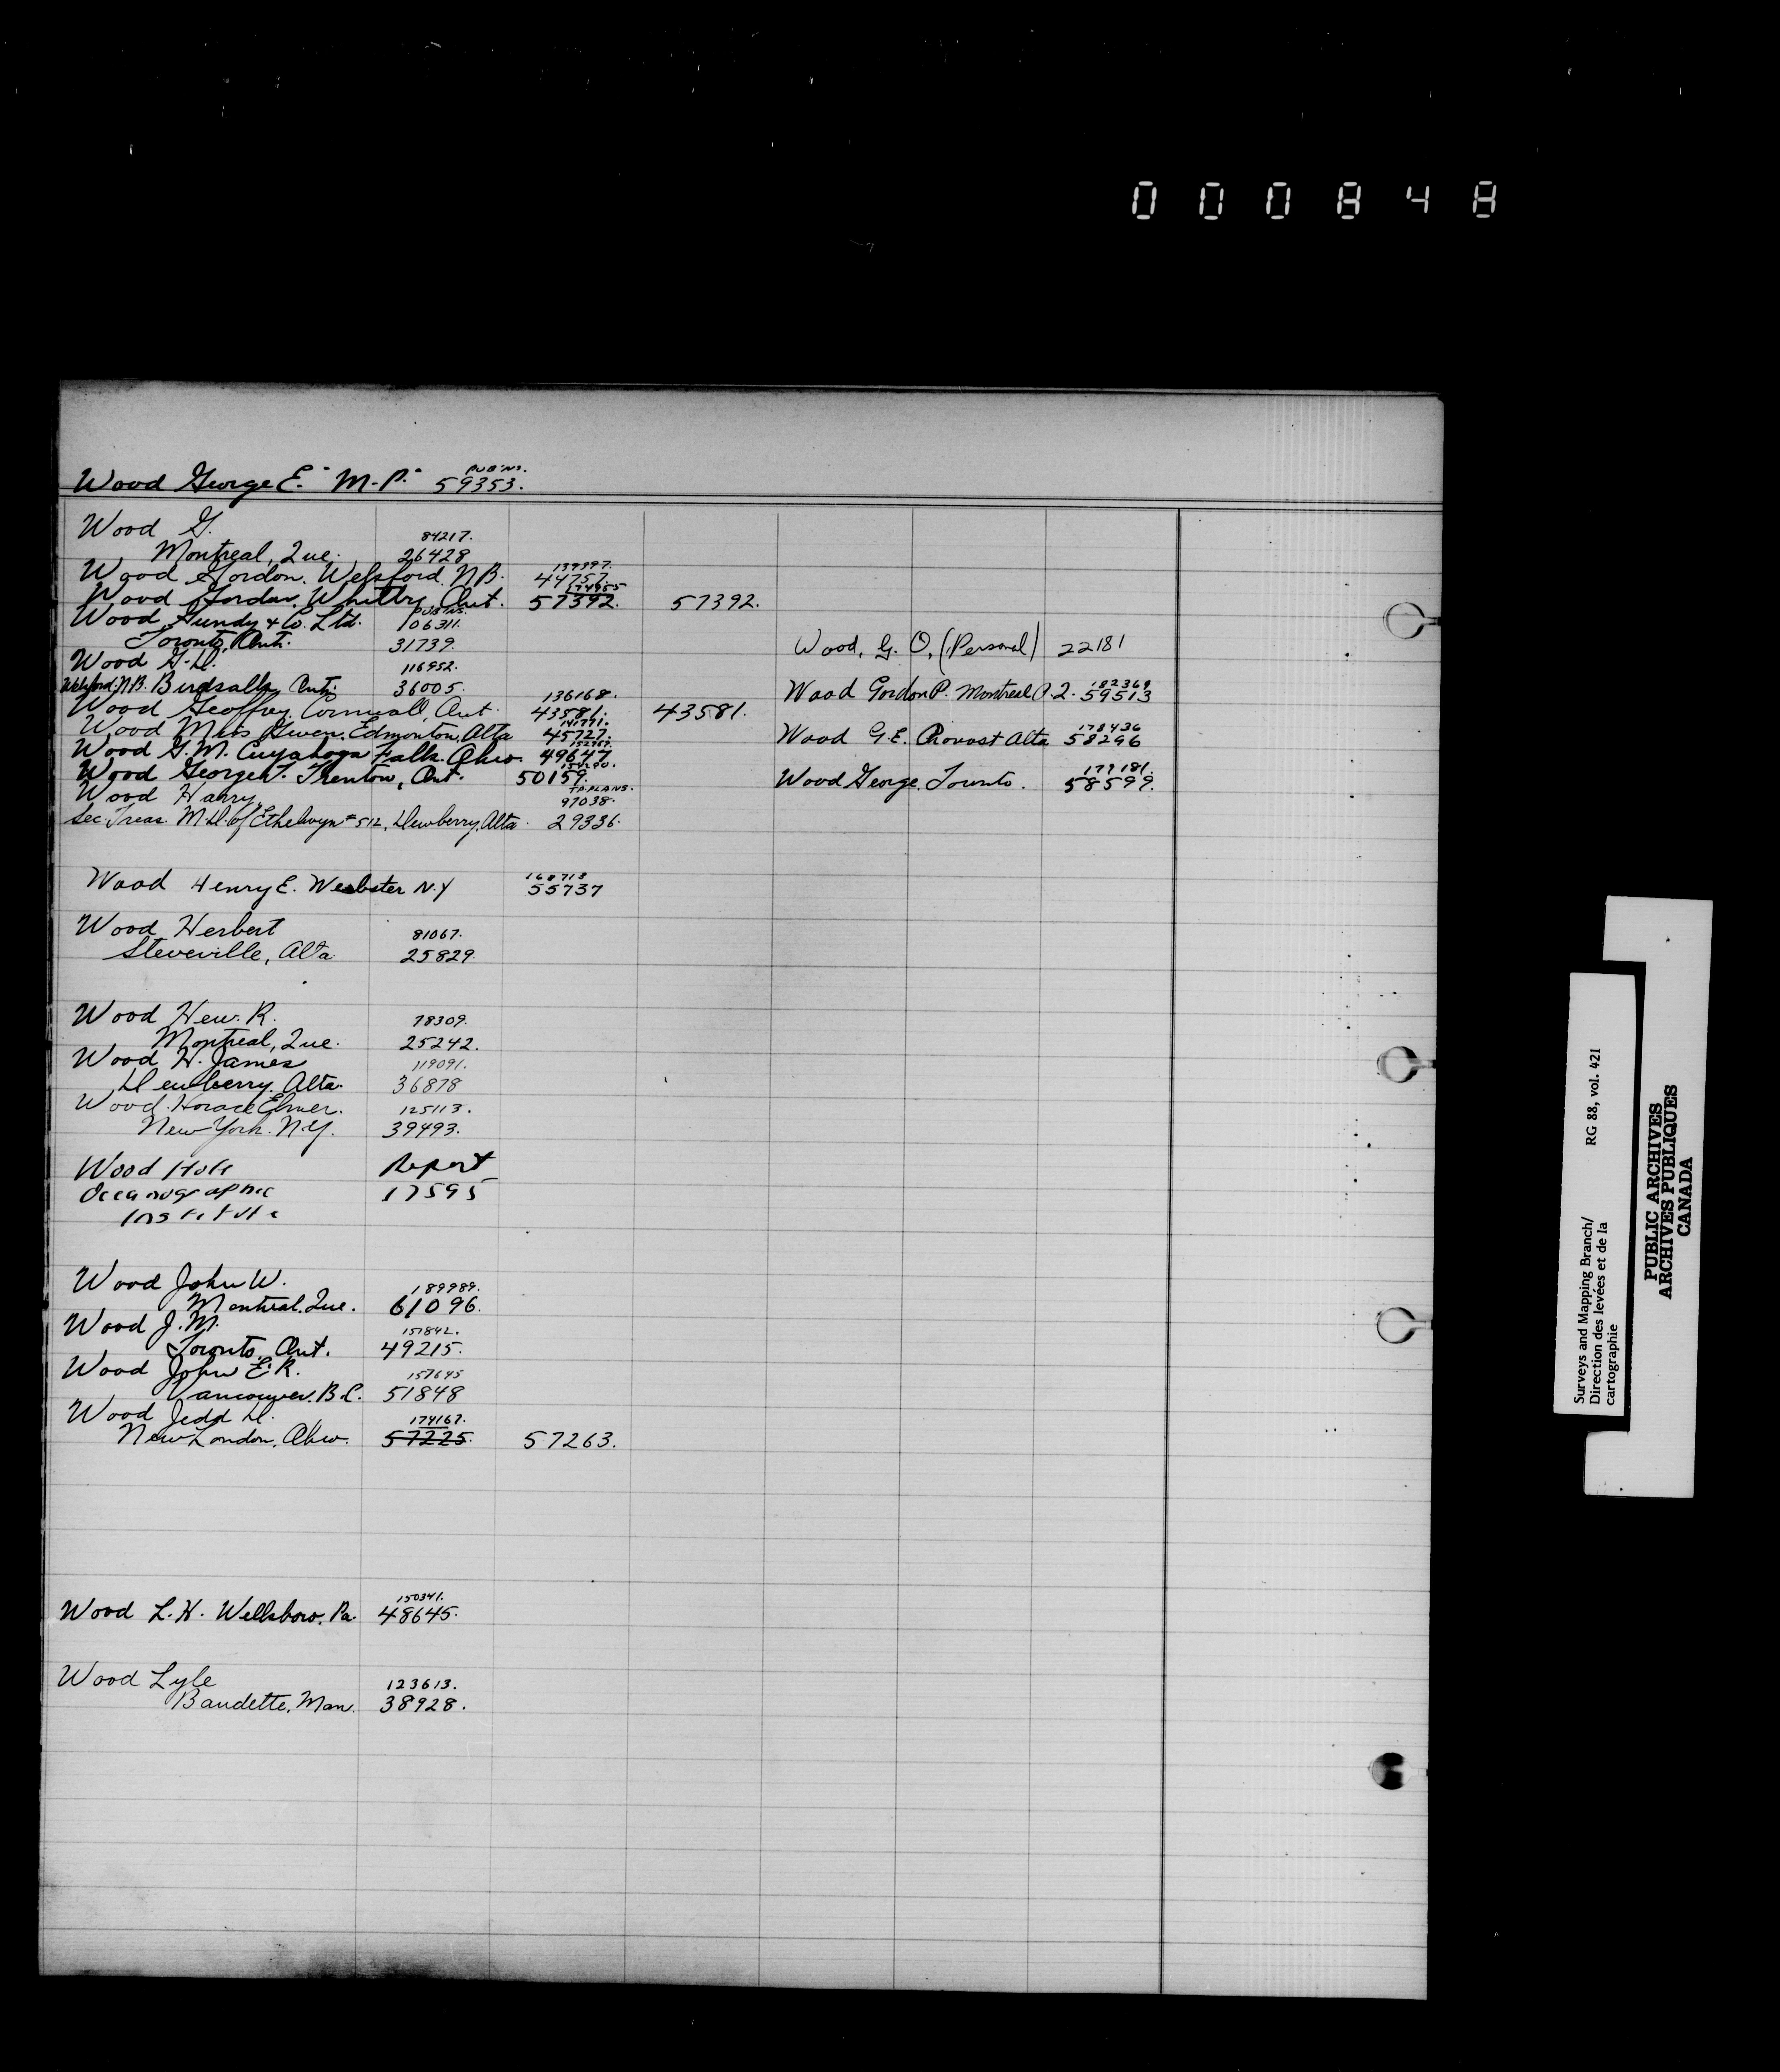 000848
PUB'NS.
Wood George E. "M.P." 59353.
Wood G. 84217.
Montreal, Que. 26428
Wood Gordon. Welsford. N.B. 139397. 44757.
Wood Gordon. Whitby, Ont. 57392. 57392.
Wood, Gundy & Co. Ltd. PUB'NS. 106311.
Toronto, Ont. 31739.
Wood G.D. 116952.
Welsford, N.B. Birdsalls, Ont. 36005.
Wood Geoffrey, Cornwall, Ont. 136168. 43581. 43581.
Wood Miss Gwen. Edmonton, Alta 141771. 45727.
Wood G.M. Cuyahoga Falls. Ohio. 49647.
Wood George T. Trenton, Ont. 50159.
Wood Harry, 97038.
Sec. Treas. M.D. of Ethelwyn #512, Dewberry, Alta. 29336.
Wood Henry E. Webster N.Y 168713 55737
Wood Herbert 81067.
Steveville, Alta. 25829.
Wood Hew. R. 78309.
Montreal, Que. 25242.
Wood H. James 119091.
Dewberry. Alta. 36878
Wood Horace Elmer. 125113.
New York. N.Y. 39493.
Wood Hole Report
Oceanographic 17595
Institute
Wood John W. 189989.
Montreal. Que. 61096.
Wood J.M. 151842.
Toronto, Ont. 49215.
Wood John E.R. 157645
Vancouver. B.C. 51848
Wood Jedd D. 174167.
New London, Ohio. 57225. 57263.
Wood L.H. Wellsboro. Pa. 150341. 48645.
Wood Lyle 123613.
Baudette, Man. 38928.
Wood, G. O. (Personal) 22181
Wood Gordon P. Montreal P.Q. 182369 59513
Wood G.E. Provost Alta 178436 58296
Wood George. Toronto. 179181. 58599.
Surveys and Mapping Branch/
Direction des levées et de la
cartographie
RG 88, vol. 421
PUBLIC ARCHIVES
ARCHIVES PUBLIQUES
CANADA